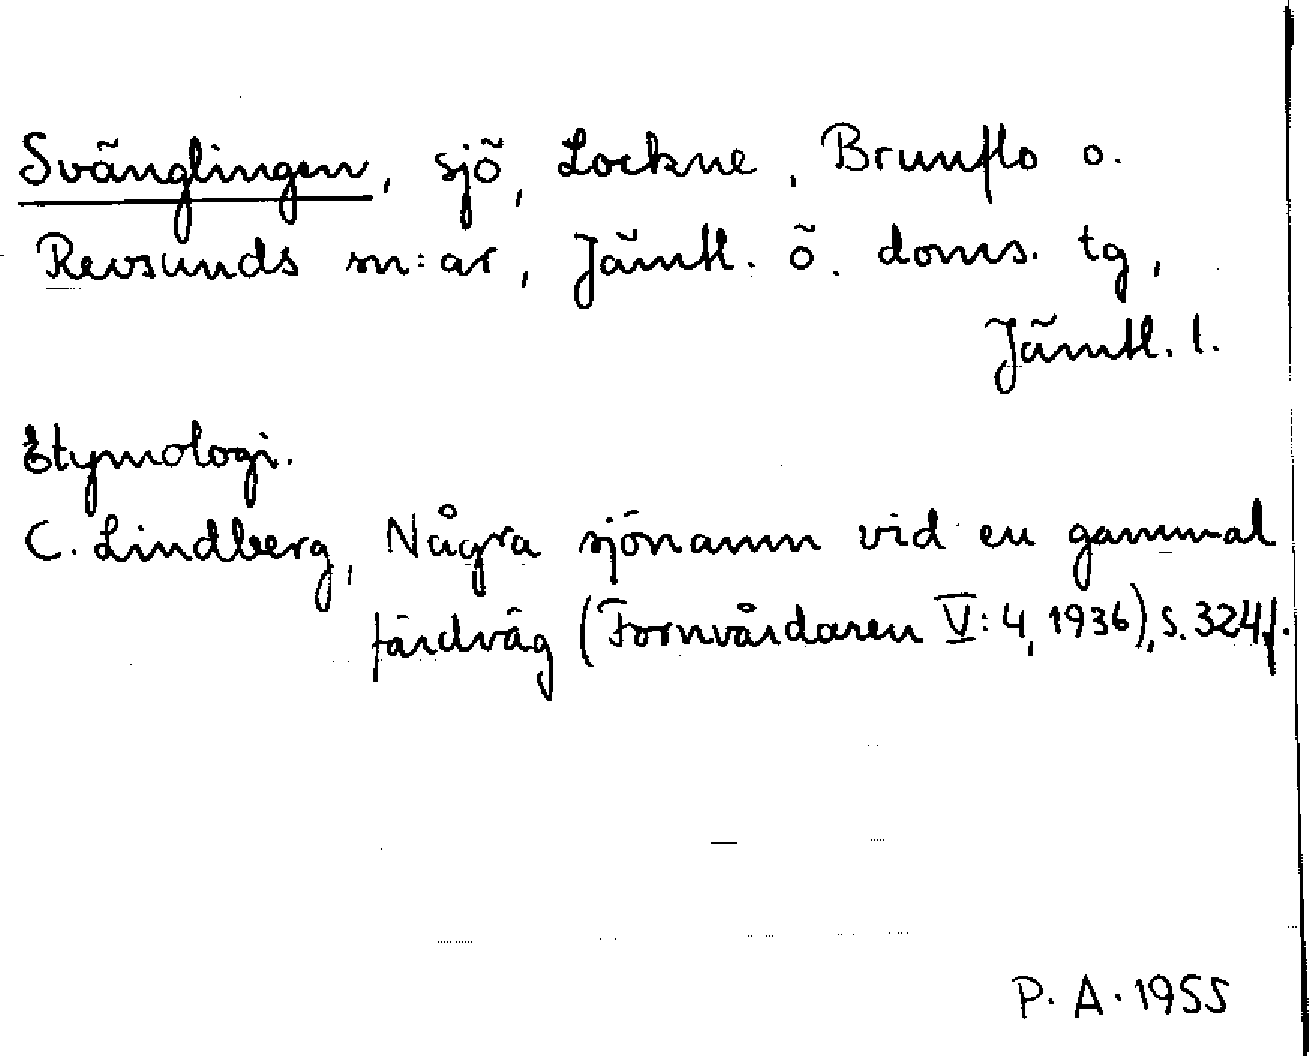 Svänglingen, sjö, Lockne, Brunflo o.
Revsunds m:ar, Jämtl. ö. doms. tg,
Jämtl. l.
Etymologi.
C. Lindberg, Några sjönamn vid en gammal
färdväg (Fornvårdaren V:4, 1936), s. 324f.
P. A. 1955